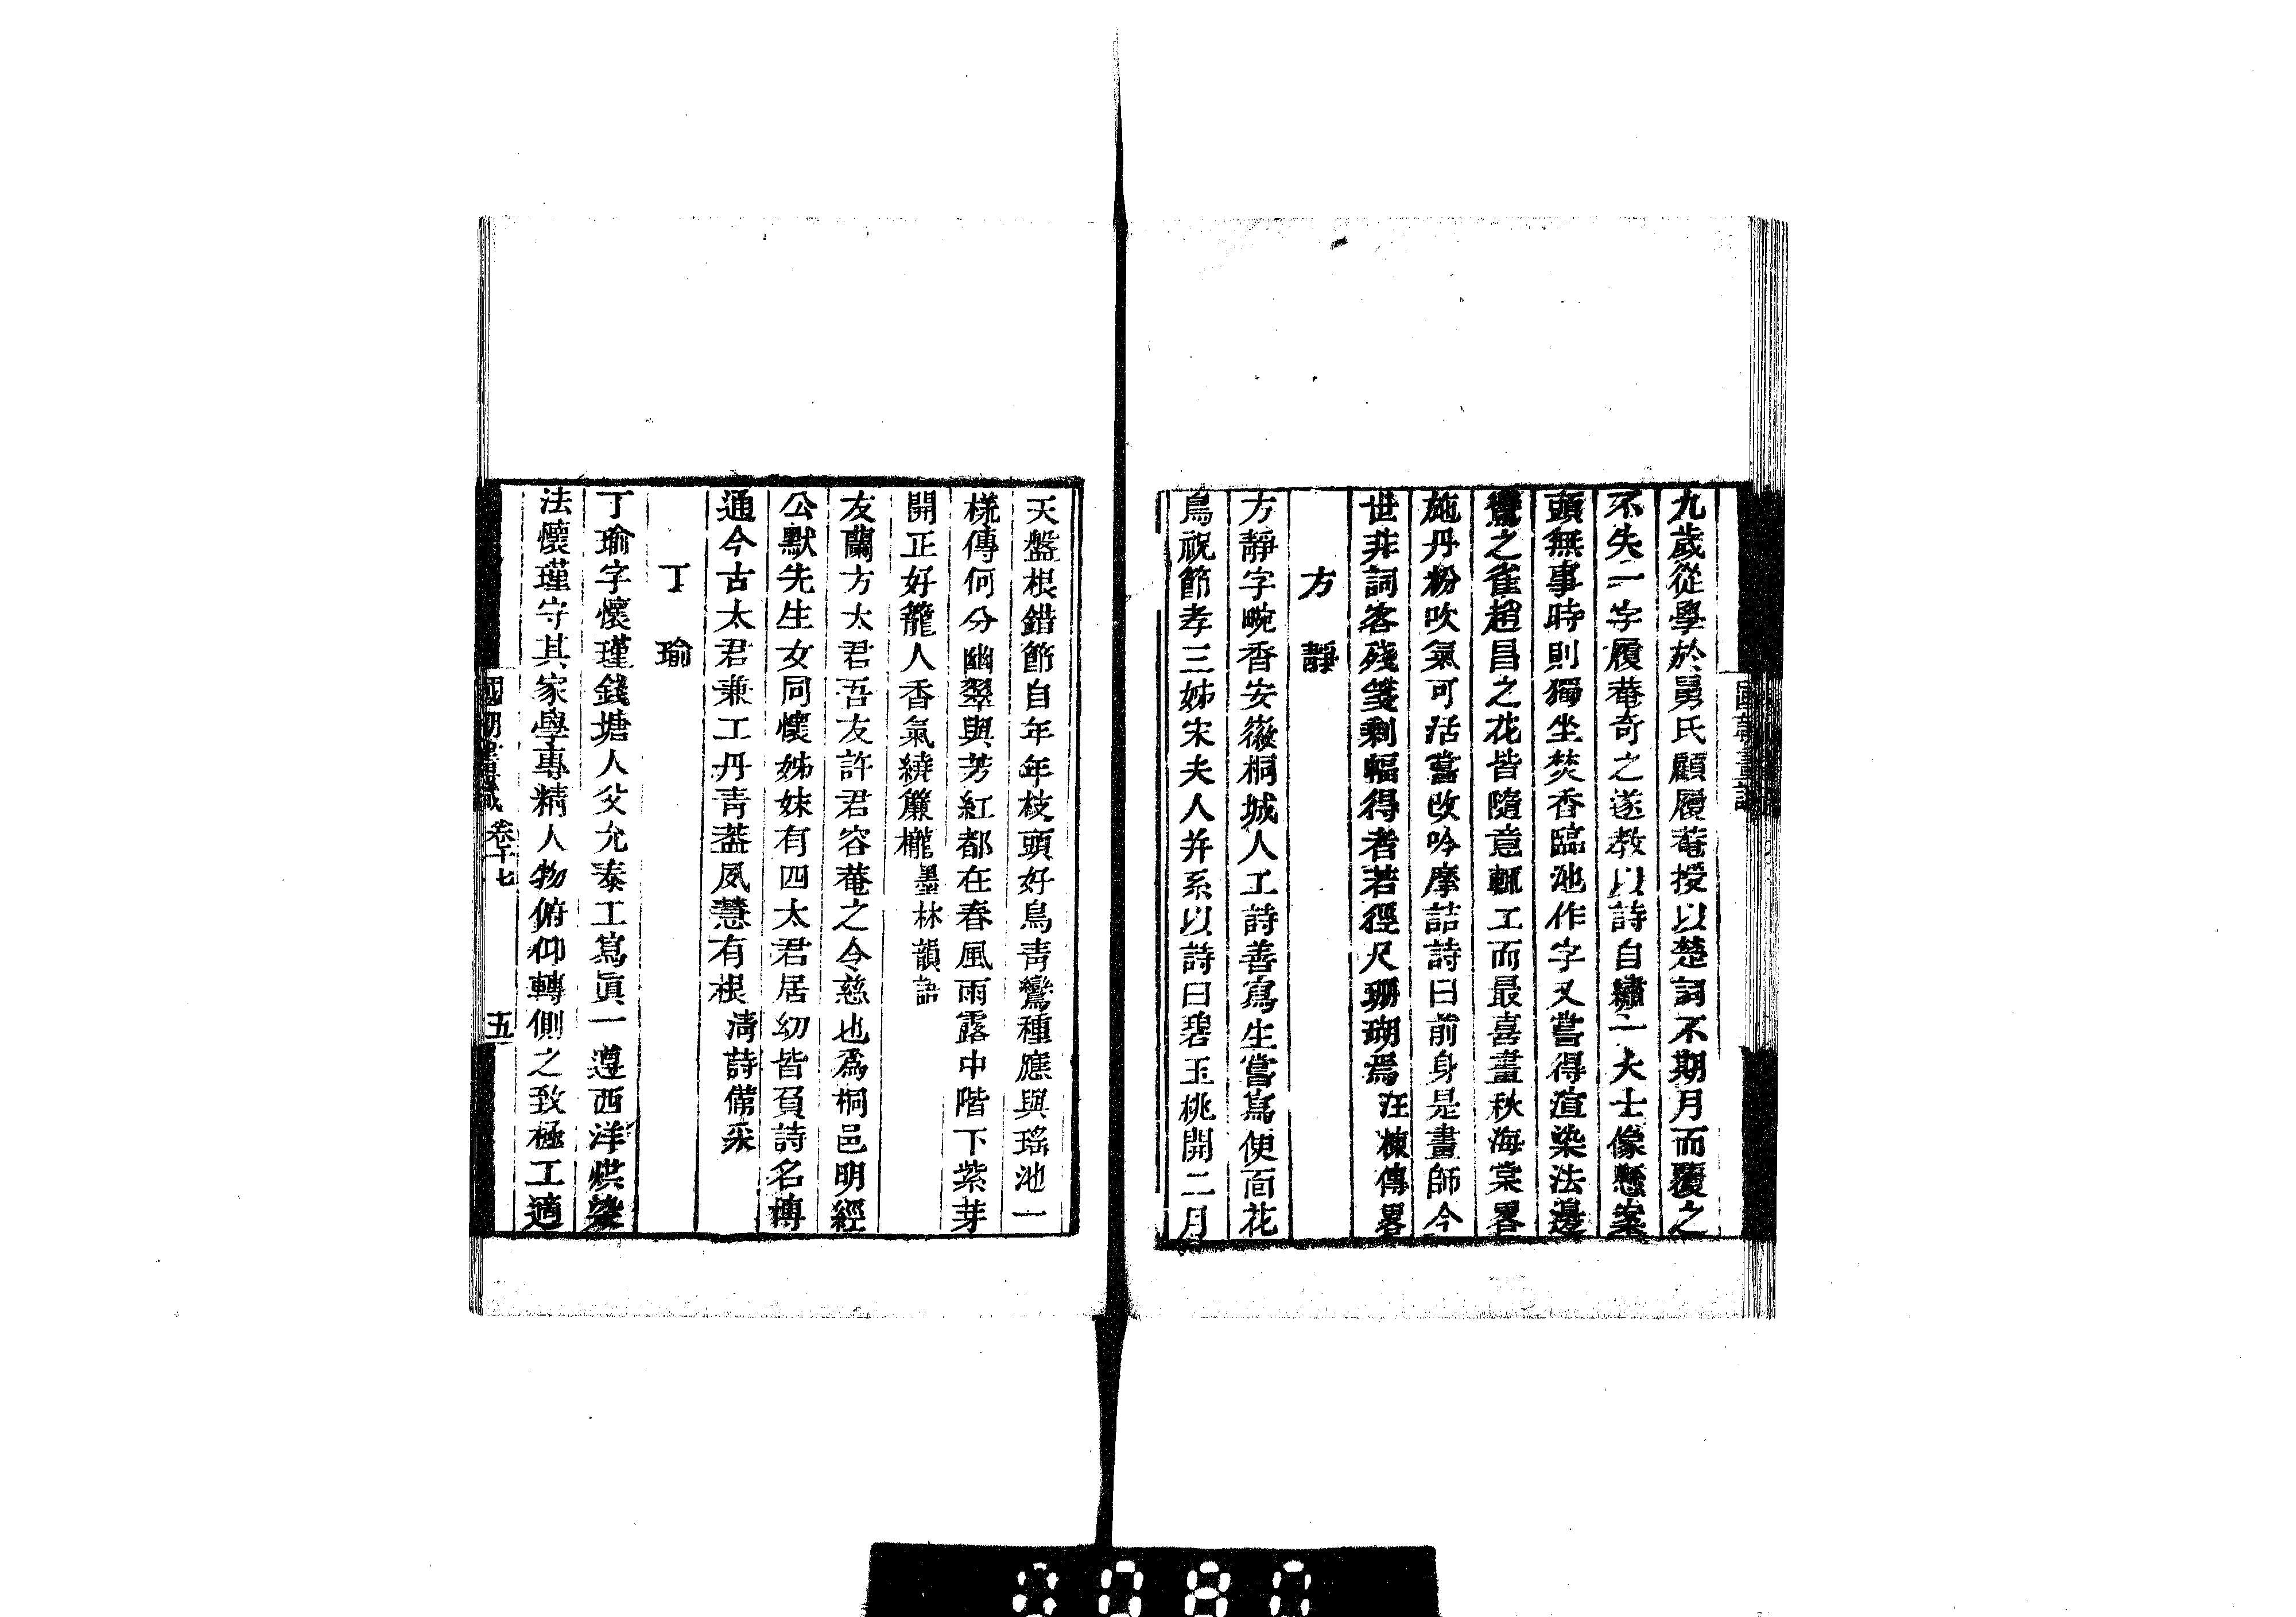 九歲從學於舅氏顧履菴授以楚詞不期月而覆之
不失一字履菴奇之遂教以詩自繡一大士像懸案
頭無事時則獨坐焚香臨池作字又嘗得渲染法邊
鸞之雀趙昌之花皆隨意輒工而最喜畫秋海棠畧
施丹粉吹氣可活嘗改吟摩詰詩曰前身是畫師今
世非詞客殘箋剩幅得者若徑尺珊瑚焉 汪棟傳畧
方靜
方靜字畹香安徽桐城人工詩善寫生嘗寫便面花
鳥祝節孝三姊宋夫人并系以詩曰碧玉桃開二月
天盤根錯節自年年枝頭好鳥靑鸞種應與瑤池一
樣傳何分幽翠與芳紅都在春風雨露中階下紫芽
開正好籠人香氣繞簾櫳 墨林韻語
友蘭方太君吾友許君容菴之令慈也爲桐邑明經
公默先生女同懷姊妹有四太君居幼皆負詩名博
通今古太君兼工丹靑葢夙慧有根 淸詩備采
丁瑜
丁瑜字懷瑾錢塘人父允泰工寫眞一遵西洋烘染
法懷瑾守其家學專精人物俯仰轉側之致極工適
國朝 卷十七 五